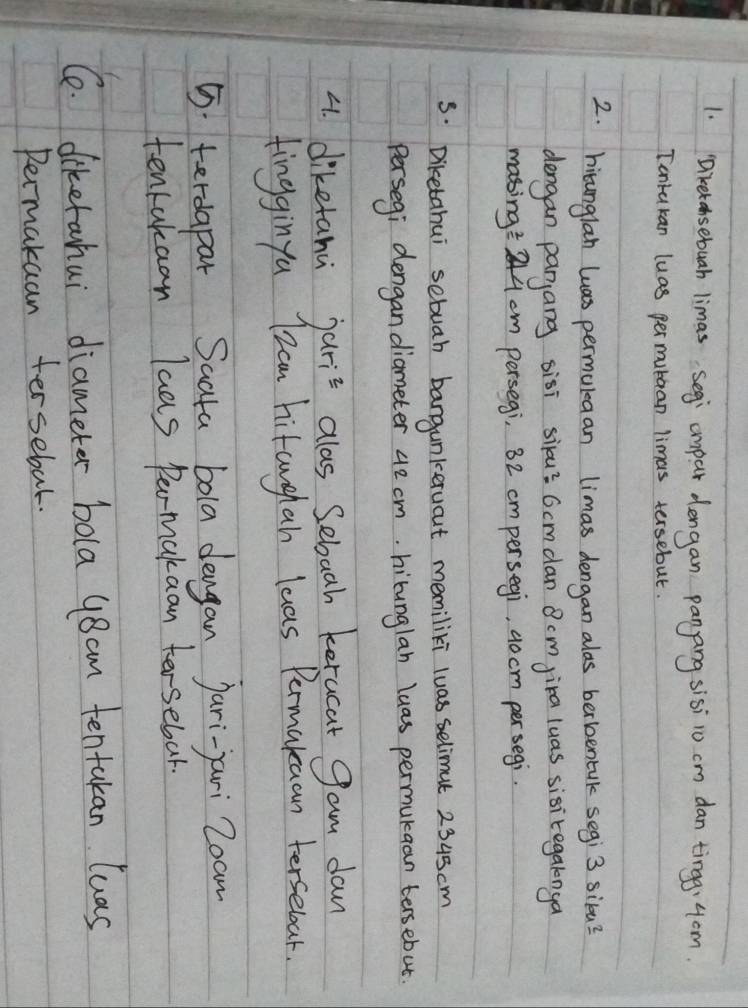 1. Diketahsebuah limas segi empat dengan panjang sisi 10 cm dan tinggi 4cm.
Tentukan luas permukaan limas tersebut.
2. hitunglah luas permukaan limas dengan alas berbentuk segi 3 siku²
dengan panjang sisi siku² 6cm dan 8cm jika luas sisi tegaknya
masing² 24 cm persegi, 32 cm persegi, 40cm persegi.
3. Diketahui sebuah bangun kerucut memiliki luas selimut 2345cm
persegi dengan diameter 42cm. hitunglah luas permukaan tersebut.
4. diketahui jari² alas sebuah kerucut 9cm dan
tingginya 12cm hitunglah luas Permukaan tersebut.
5. terdapat Suatu bola dengan jari-jari 20cm
tentukaan luas Permukaan tersebut.
6. diketahui diameter bola 48cm tentukan luas
Permukaan tersebut.